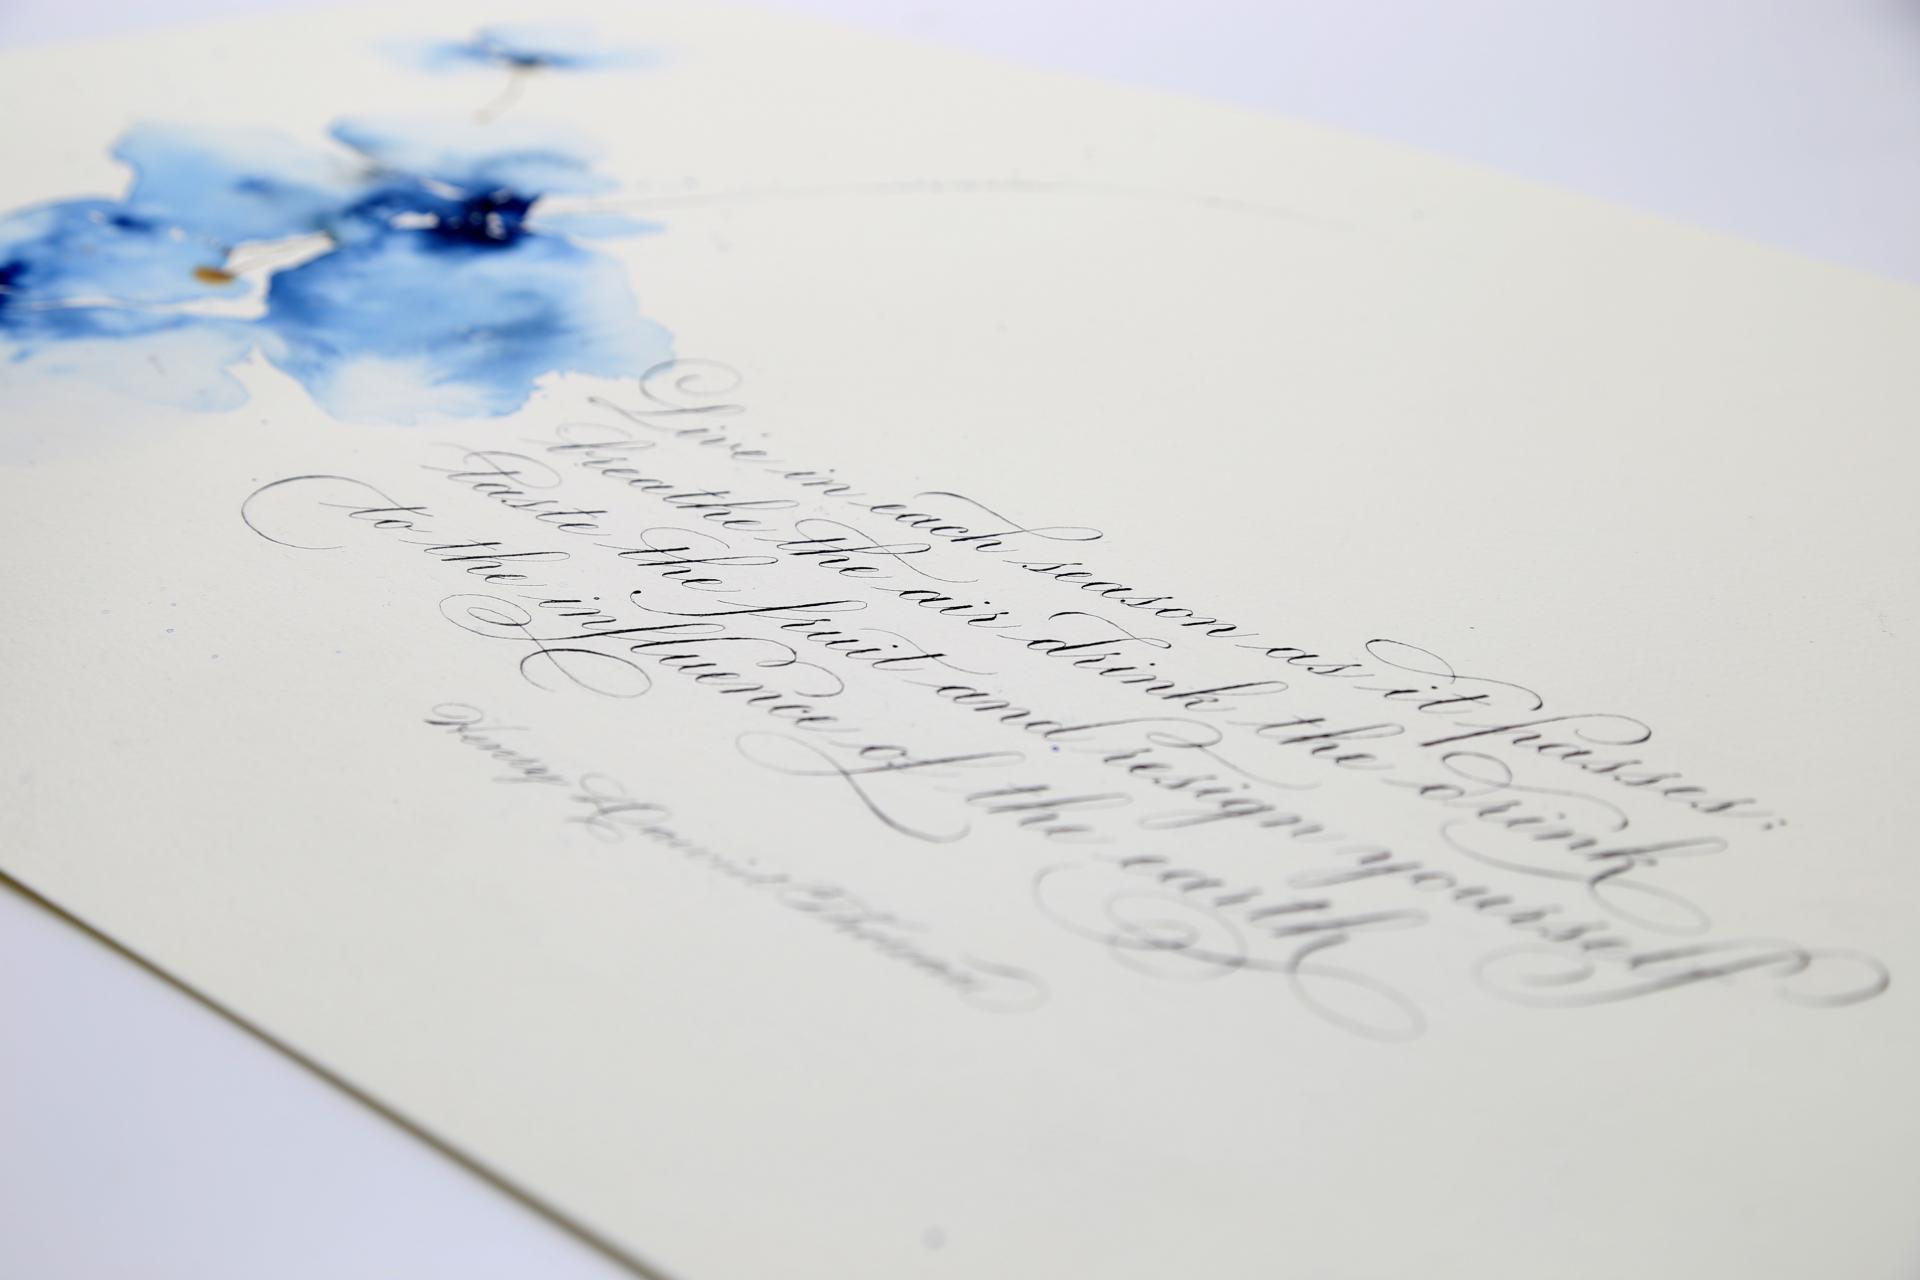 Live in each season as it passes:
breathe the air drink the drink
taste the fruit and resign yourself
to the influence of the earth
Henry Davis Thorou